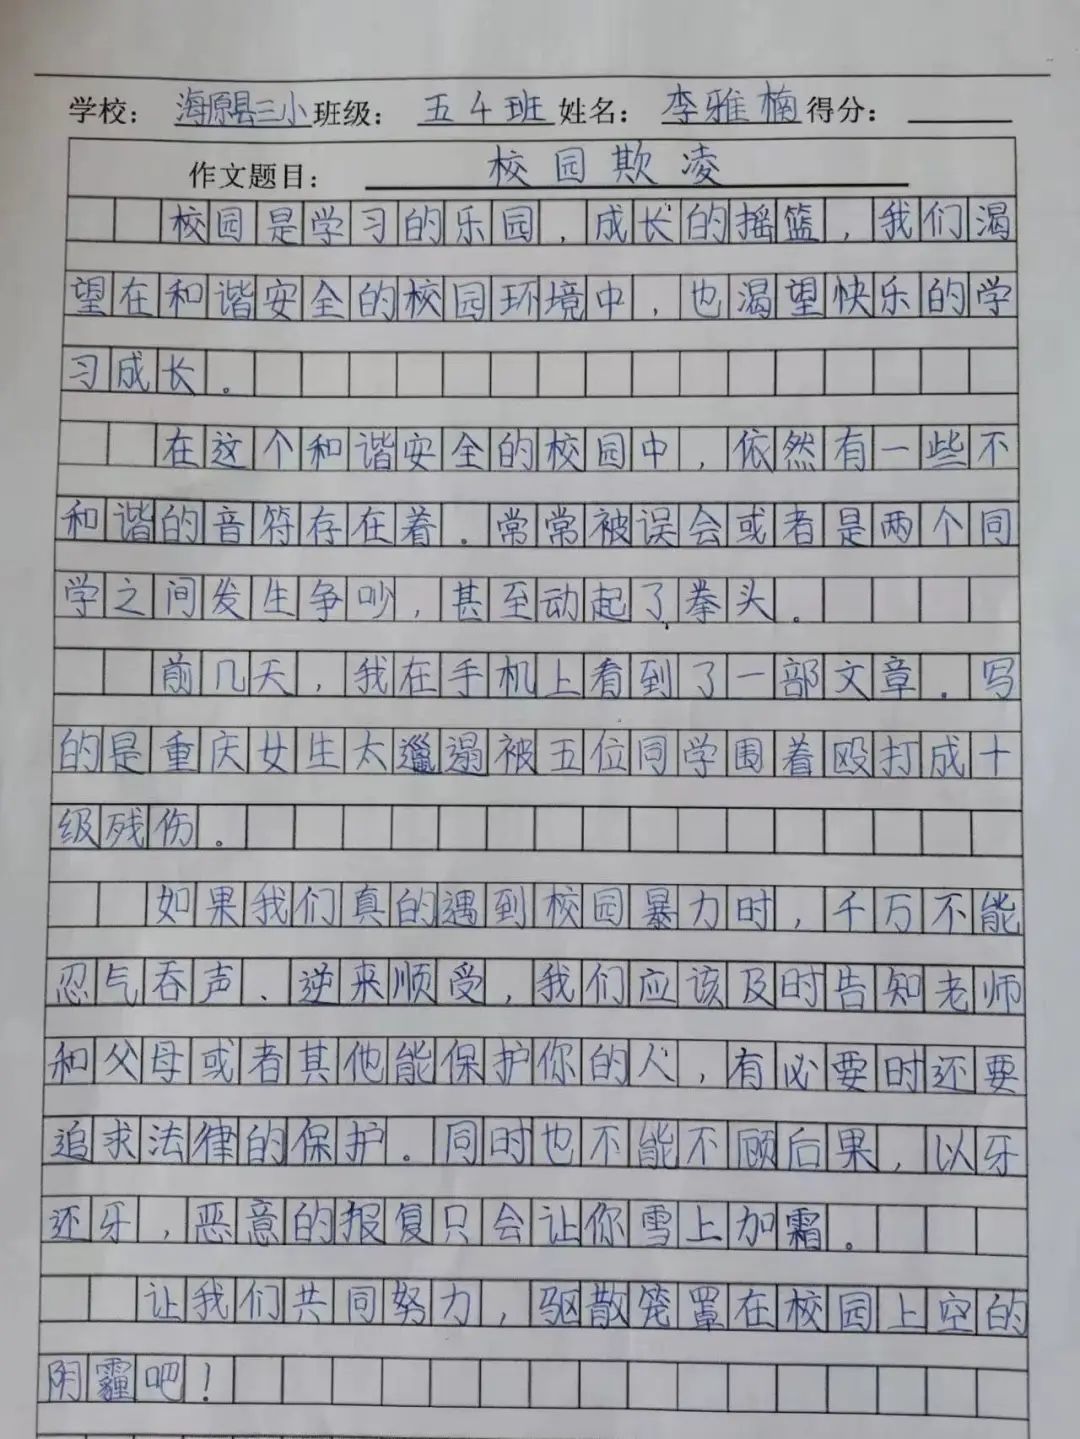 学校： 海原县三小 班级： 五4班 姓名： 李雅楠 得分：
作文题目： 校园欺凌
校园是学习的乐园，成长的摇篮，我们渴
望在和谐安全的校园环境中，也渴望快乐的学
习成长。
在这个和谐安全的校园中，依然有一些不
和谐的音符存在着．常常被误会或者是两个同
学之间发生争吵，甚至动起了拳头。
前几天，我在手机上看到了一部文章．写
的是重庆女生太邋遢被五位同学围着殴打成十
级残伤。
如果我们真的遇到校园暴力时，千万不能
忍气吞声、逆来顺受，我们应该及时告知老师
和父母或者其他能保护你的人，有必要时还要
追求法律的保护。同时也不能不顾后果，以牙
还牙，恶意的报复只会让你雪上加霜。
让我们共同努力，驱散笼罩在校园上空的
阴霾吧！